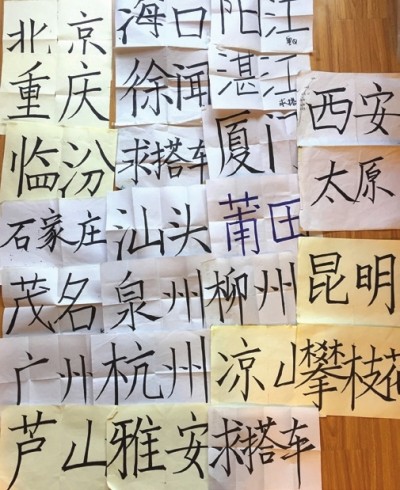 北京
海口
阳江
重庆
徐闻
湛江
西安
临汾
求搭车
厦门
太原
石家庄
汕头
莆田
茂名
泉州
柳州
昆明
广州
杭州
凉山
攀枝花
芦山
雅安
求搭车